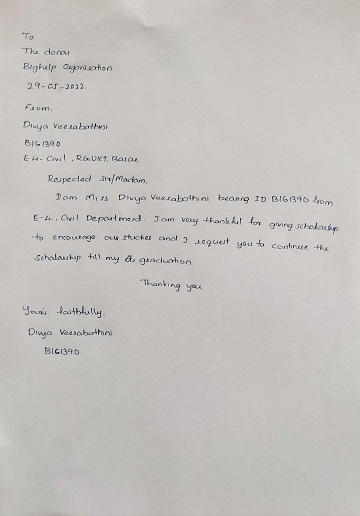 To
The donar
Bighelp Organisation.
29-05-2022.
From,
Divya Veerabathini
B161390
E-4. Civil, RGUKT, Basar.
Respected Sir/Madam,
I am Miss Divya Veerabathini bearing ID B161390 from
E-4, Civil Department. I am very thankful for giving scholarship
to encourage our studies and I request you to continue the
Scholarship till my graduation.
Thanking you
Your's faithfully,
Divya Veerabathini
B161390.